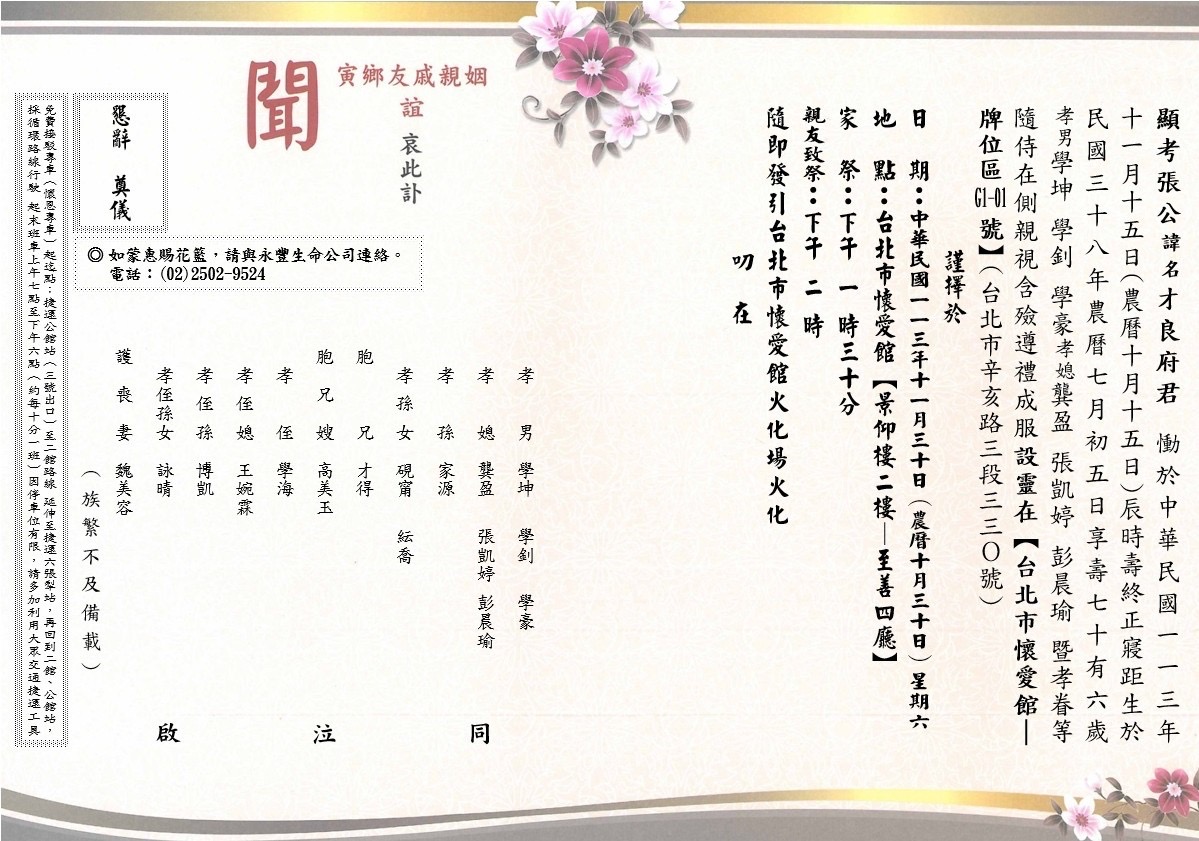 顯考張公諱名才良府君　慟於中華民國一一三年
十一月十五日(農曆十月十五日)辰時壽終正寢距生於
民國三十八年農曆七月初五日享壽七十有六歲
孝男學坤　學釗　學豪孝媳龔盈　張凱婷　彭晨瑜　暨孝眷等
隨侍在側親視含殮遵禮成服設靈在【台北市懷愛館—
牌位區G1-01號】(台北市辛亥路三段三三○號)
謹擇於
日　期：中華民國一一三年十一月三十日(農曆十月三十日)星期六
地　點：台北市懷愛館【景仰樓二樓—至善四廳】
家　祭：下午　一　時三十分
親友致祭：下午　二　時
隨即發引台北市懷愛館火化場火化
叨　在
姻親戚友鄉寅
誼　哀此訃
聞
孝　男　學坤　學釗　學豪
孝　媳　龔盈　張凱婷　彭晨瑜
孝　孫　家源
孝孫女　硯甯　紜喬
胞　兄　才得
胞兄嫂　高美玉
孝　侄　學海
孝侄媳　王婉霖
孝侄孫　博凱
孝侄孫女　詠晴
護喪妻　魏美容
(族繁不及備載)
同　泣　啟
懇辭　奠儀
◎如蒙惠賜花籃，請與永豐生命公司連絡。
電話：(02)2502-9524
免費接駁專車(懷恩專車)起迄點：捷運公館站(三號出口)至二館路線 延伸至捷運六張犁站，再回到二館、公館站，
採循環路線行駛 起末班車上午七點至下午六點(約每十分一班)因停車位有限，請多加利用大眾交通捷運工具